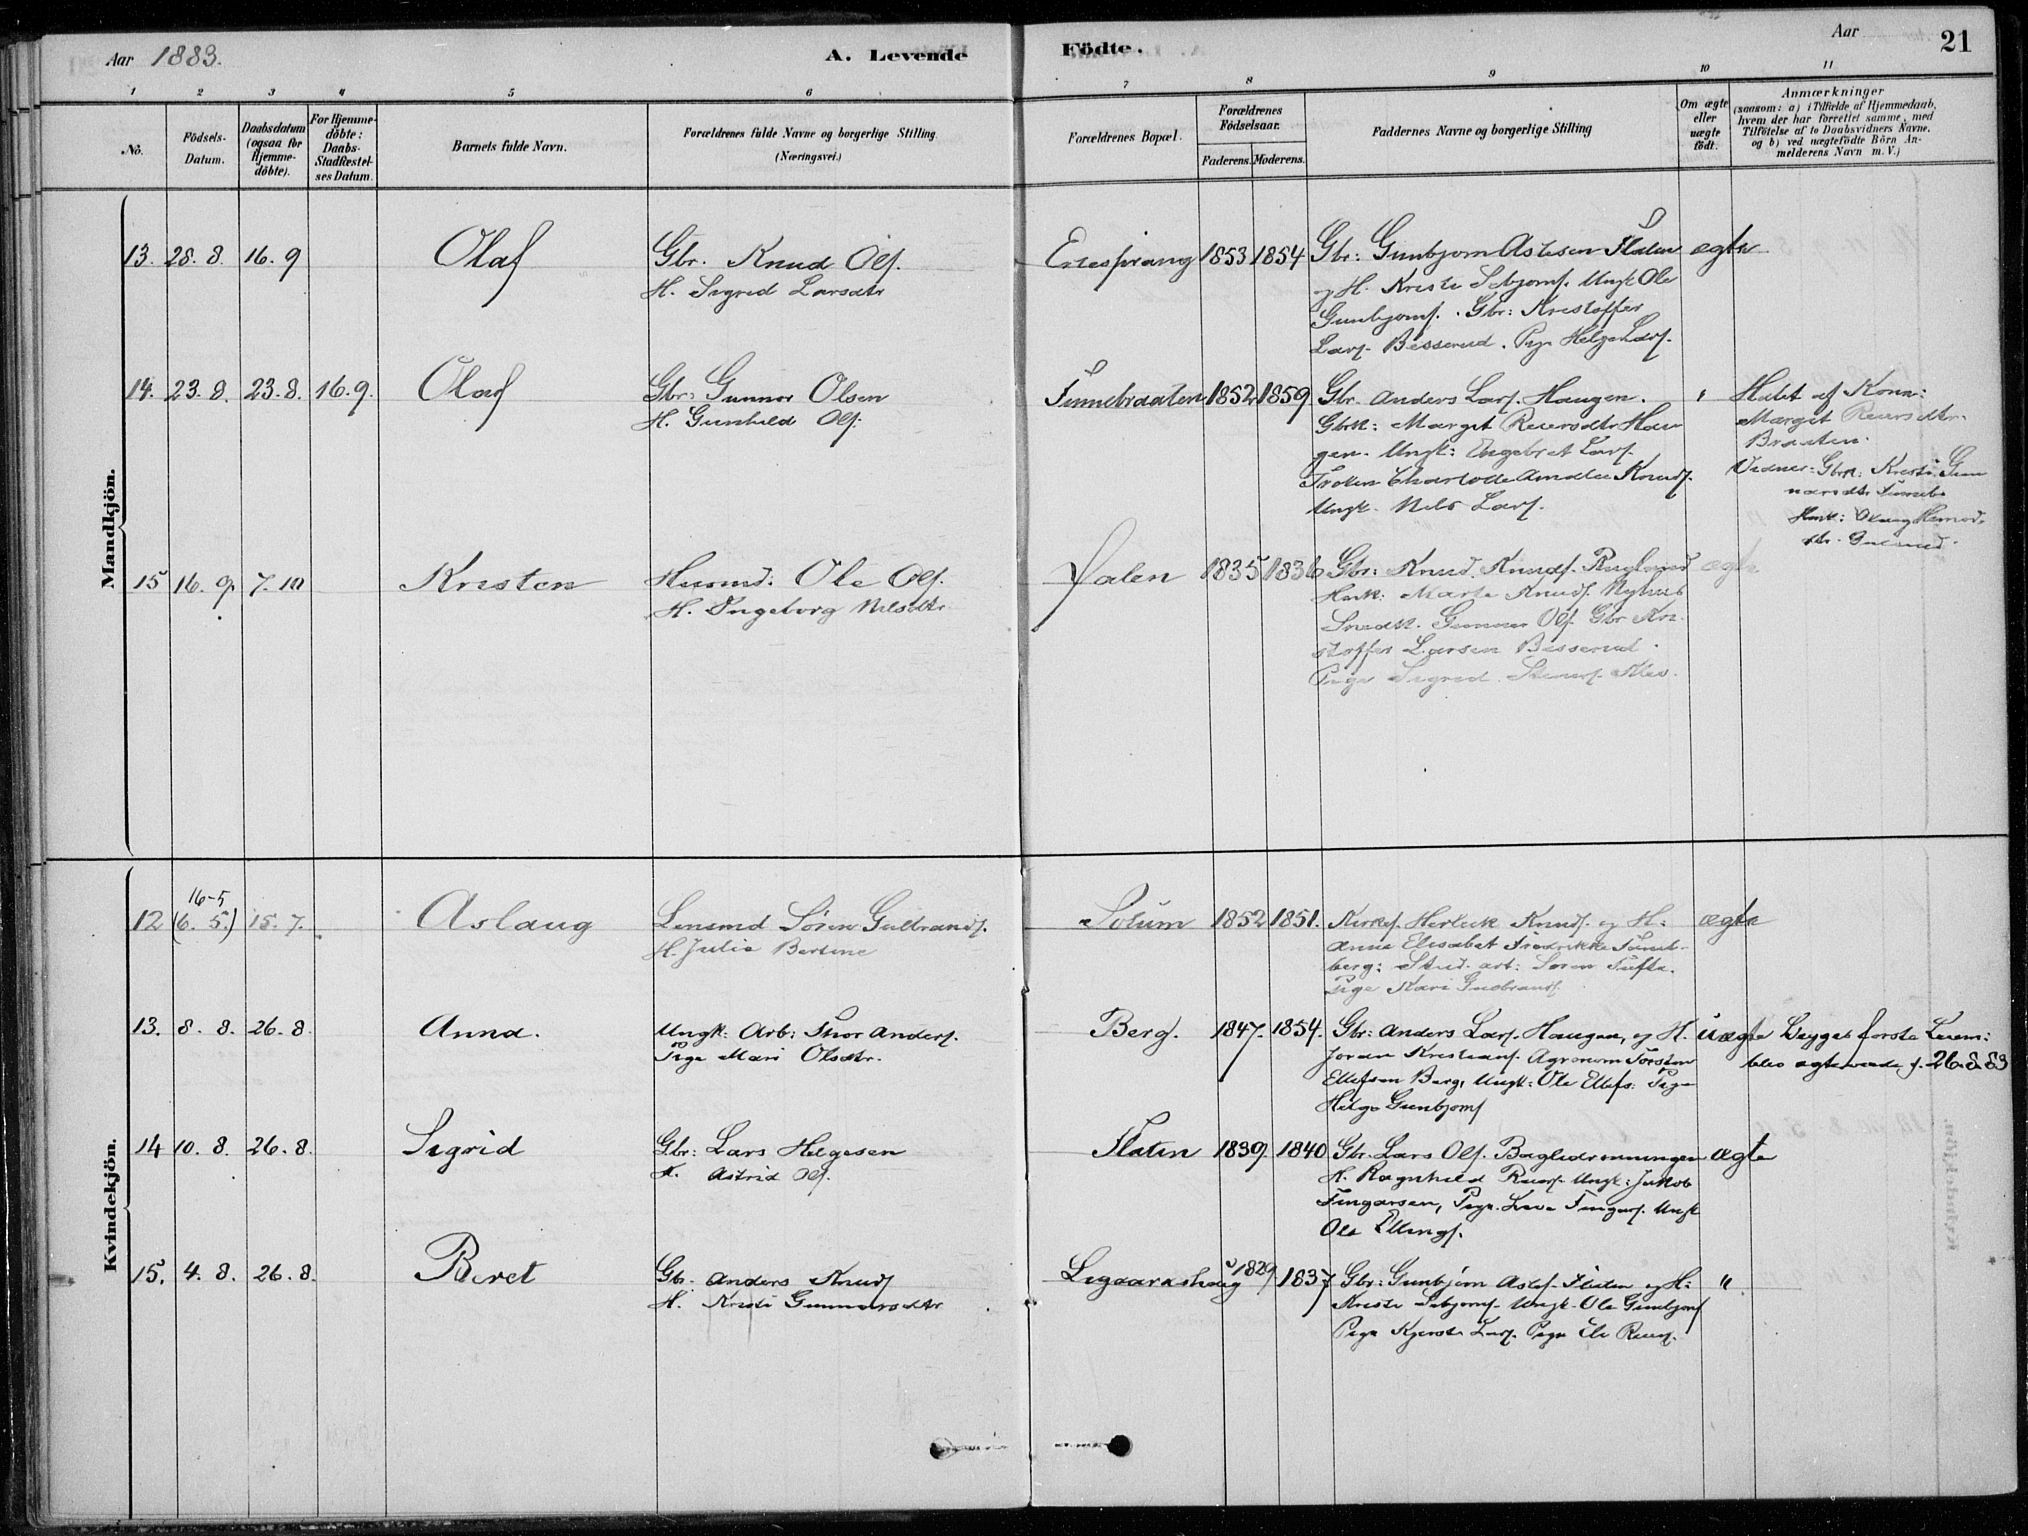 Aar 1883.
A. Levende
Födte.
Aar
21
1 2 3 4 5 6 7 8 9 10 11
No.
Födsels-
Datum.
Daabsdatum
(ogsaa for
Hjemme-
döbte).
For Hjemme-
döbte:
Daabs-
Stadfæstel-
ses Datum.
Barnets fulde Navn.
Forældrenes fulde Navne og borgerlige Stilling.
(Næringsvei.)
Forældrenes Bopæl.
Forældrenes
Födselsaar.
Faderens. Moderens.
Faddernes Navne og borgerlige Stilling
Om ægte
eller
uægte
födt.
Anmærkninger
(saasom: a) i Tilfælde af Hjemmedaab,
hvem der har forrettet samme, med
Tilföielse af to Daabsvidners Navne,
og b) ved uægtefödte Börn An-
melderens Navn m. V.)
Mandkjön.
13. 28. 8. 16. 9 Olaf
Gbr. Knud Ols.
H. Sigrid Larsdtr
1853 1854
Gbr: Gunbjorn Astesen Flaten
og H. Kristi Sebjorns. Ungk Ole
Gunbjorns. Gbr: Kristoffer
Lars. Besserud. Pige Helge Lars.
ægte
14. 23. 8. 23. 8. 16. 9. Olaf
Gbr: Gunnar Olsen
H. Gunhild Ols.
Finnebraaten 1852 1859
Gbr. Anders Lars. Haugen.
Gbrk: Margit Reiersdtr Hau
gen. Ungk: Engebret Lars.
Frøken Charlotte Amalie Knuds.
Ungk. Nils Lars.
"
af Kona:
Margit Reiersdtr.
Braaten.
Vidner: Gbrk: Kristi Gun
narsdtr
15 16. 9. 7. 10 Kristen
Husmd. Ole Ols.
H. Ingeborg Nilsdtr.
1835 1836
Gbr: Knud Knuds.
Marte Knuds. Nyhus
Gunnar Ols. Gbr Kri
stoffer Larsen Besserud.
Pige Sigrid
ægte
Kvindekjön.
16-5
12 (6. 5.) 15. 7. Aslaug
Lensmd Sören Gulbrands.
H. Julie Bertine
Solum 1852 1851.
Kirkes. Herleik Knuds. og H:
Anna Elisabet Fredrikke
berg: Stud. art: Sören Tufte.
Pige Kari Gulbrands.
ægte
13. 8. 8. 26. 8. Anna.
Ungk: Arb: Thor Anders.
Pige Mari Olsdtr.
Berg. 1847. 1854.
Gbr: Anders Lars. Haugen, og H.
Joran Kristians. Agronom Torsten
Ellefsen Berg, Ungk: Ole Ellefs: Pige
Helge Gunbjorns
uægte
Begges förste Leierm:
blev ægteviede d. 26.8.83
14 10. 8. 26. 8. Sigrid
Gbr: Lars Helgesen
H. Astrid Ols.
Flaten 1839. 1840
Gbr. Lars Ols.
H. Ragnhild Reiers. Ungk: Jakob
Fingarsen, Pige Fingars. Ungk
Ole Ellings.
ægte
15. 4. 8. 26. 8. Beret
Gbr. Anders Knuds
H. Kristi Gunnarsdtr
1829 1837
Gbr: Gunbjörn Astes. Flaten og H:
Kristi Sebjorns. Ungk. Ole Gunbjorns
Pige Kjersti Lars. Pige Eli Reiers.
"